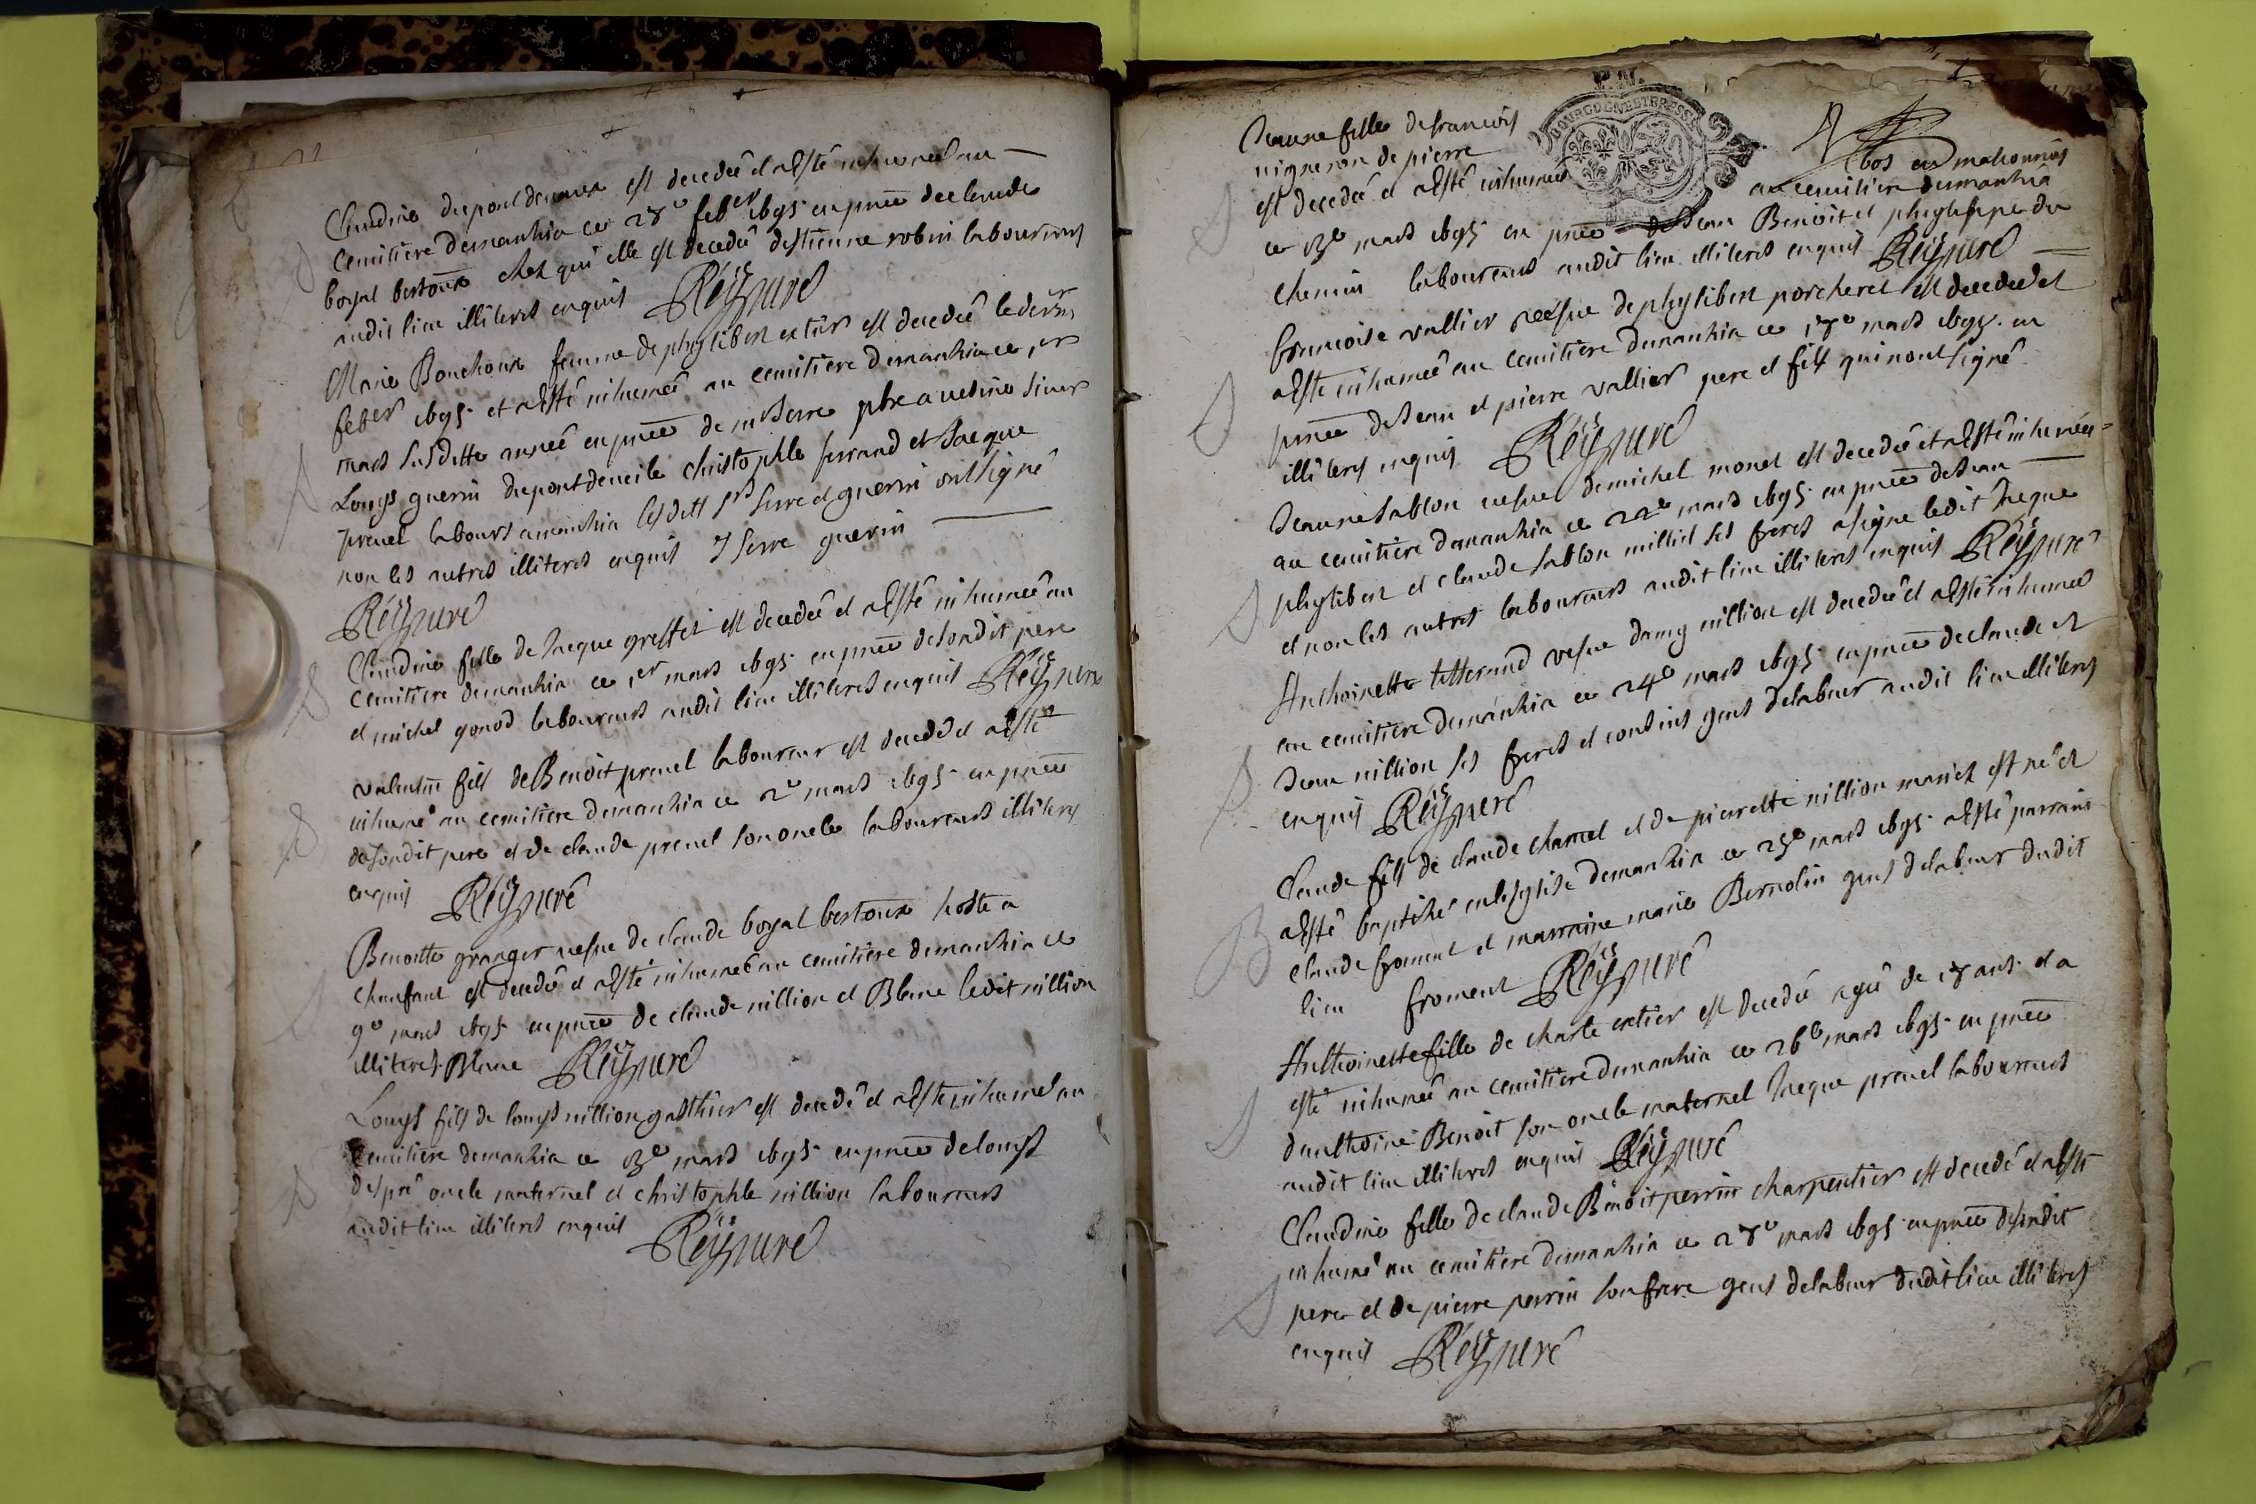 Claudine dupont de vaux est decedeé et a Esté inhumeé au
Cemitiere demanhia ce 28e feber 1695 en pnce de claude
boyat bertoux chez qui elle est decedeé destienne robin laboureurs
audit lieu illiteres enquis Réy curé
Marie Bouchoux femme de phylibert cutier est decedeé le dernr
feber 1695 et a Esté inhumeé au cemitiere demanhia ce 1er
mars susditte anneé en pnce de mr Serre pbre a sieur
Louys guerin du pont de veile christophle ferrand et Jacque
prevel labours a manhia lesditts srs Serre et guerin ont signé
non les autres illiteres enquis J Serre guerin
Réy curé
Claudine fille de Jacque greffet est decedeé et a Esté inhumeé au
Cemitiere demanhia ce 1er mars 1695 en pnce de sondit pere
et michel gonod laboureurs audit lieu illiteres enquis Réy curé
valentin fils de Benoit prevel laboureur est decedé et a Esté
inhumé au cemitiere demanhia ce 2e mars 1695 en pnce
de sondit pere et de claude prevel son oncle laboureurs illiteres
enquis Réy curé
Benoitte granger vefve de claude boyat bertoux hoste a
Chanfant est decedeé et a Esté inhumeé au cemitiere demanhia ce
9e mars 1695 en pnce de claude million et Blanc ledit million
illiteres Blanc Réy curé
Louys fils de louys million gatthier est decedé et a Esté inhumé au
Cemitiere demanhia ce 13e mars 1695 en pnce de louys
despré oncle maternel et christophle million laboureurs
audit lieu illiteres enquis Réy curé
BOURGOGNE ET BRESSE
Jeanne fille de francois bos en mahonnas
vigneron de pierre au cemitiere demanhia
est decedeé et a Esté inhumeé
ce 13e mars 1695 en pnce de Jean Benoit et phylippe du
chemin laboureurs audit lieu illiteres enquis Réy curé
francoise vallier vefve de phylibert porcheret est decedeé et
a Esté inhumeé au Cemitiere demanhia ce 18e mars 1695 en
pnce de Jean et pierre vallier pere et fils qui n'ont signé
illiteres enquis Réy curé
Jeanne sablon vefve de michel monet est decedeé et a Esté inhumeé
au cemitiere demanhia ce 22e mars 1695 en pnce de Jean
phylibert et claude sablon millict ses freres a signe ledit Jacque
et non les autres laboureurs audit lieu illiteres enquis Réy curé
Anthoinette vefve million est decedeé et a Esté inhumeé
au cemitiere demanhia ce 24e mars 1695 en pnce de claude et
Jean million ses freres et cousins gens de labeur audit lieu illiteres
enquis Réy curé
Claude fils de claude chanel et de pierrette million mariez est né et
a Esté baptizé en l'esglise demanhia ce 25e mars 1695 a Esté parrain
claude froment et marraine marie Bernolin gens de labeur dudit
lieu froment Réy curé
Anthoinette fille de charle cutier est decedeé ageé de 18 ans et a
esté inhumeé au cemitiere demanhia ce 26e mars 1695 en pnce
d'anthoine Benoit son oncle maternel Jacque prevel laboureurs
audit lieu illiteres enquis Réy curé
Claudine fille de claude Benoit perrin charpentier est decedé et a Esté
inhumé au cemitiere demanhia ce 28e mars 1695 en pnce de sondit
pere et de pierre perrin son frere gens de labeur dudit lieu illiteres
enquis Réy curé